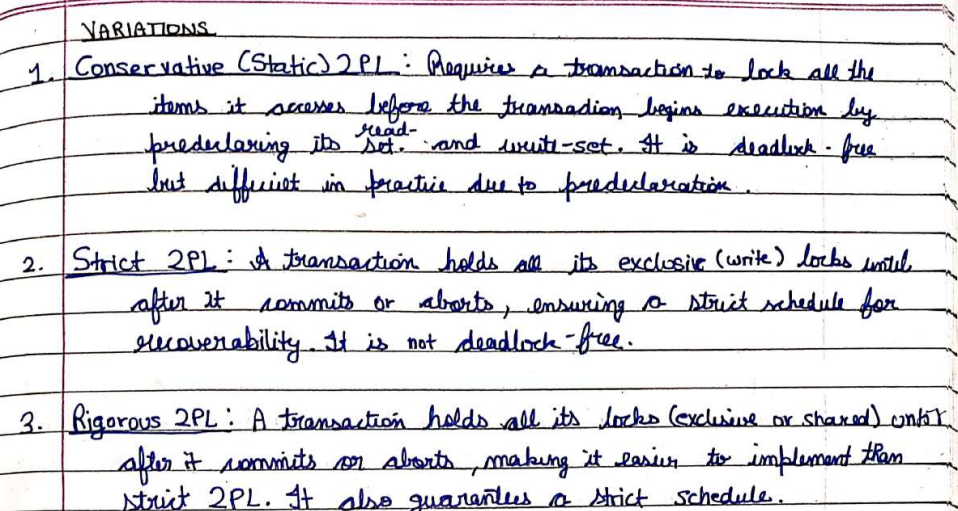 VARIATIONS
1. Conservative (Static) 2PL : Requires a transaction to lock all the
items it accesses before the transadion begins execution by
predeclaring its read-set. and write-set. It is deadlock-free
but difficult in practice due to predeclaration.
2. Strict 2PL : A transaction holds all its exclusive (write) locks until
after it commits or aborts, ensuring a strict schedule for
recoverability. It is not deadlock-free.
3. Rigorous 2PL : A transaction holds all its locks (exclusive or shared) until
after it commits or aborts, making it easier to implement than
strict 2PL. It also guarantees a strict schedule.